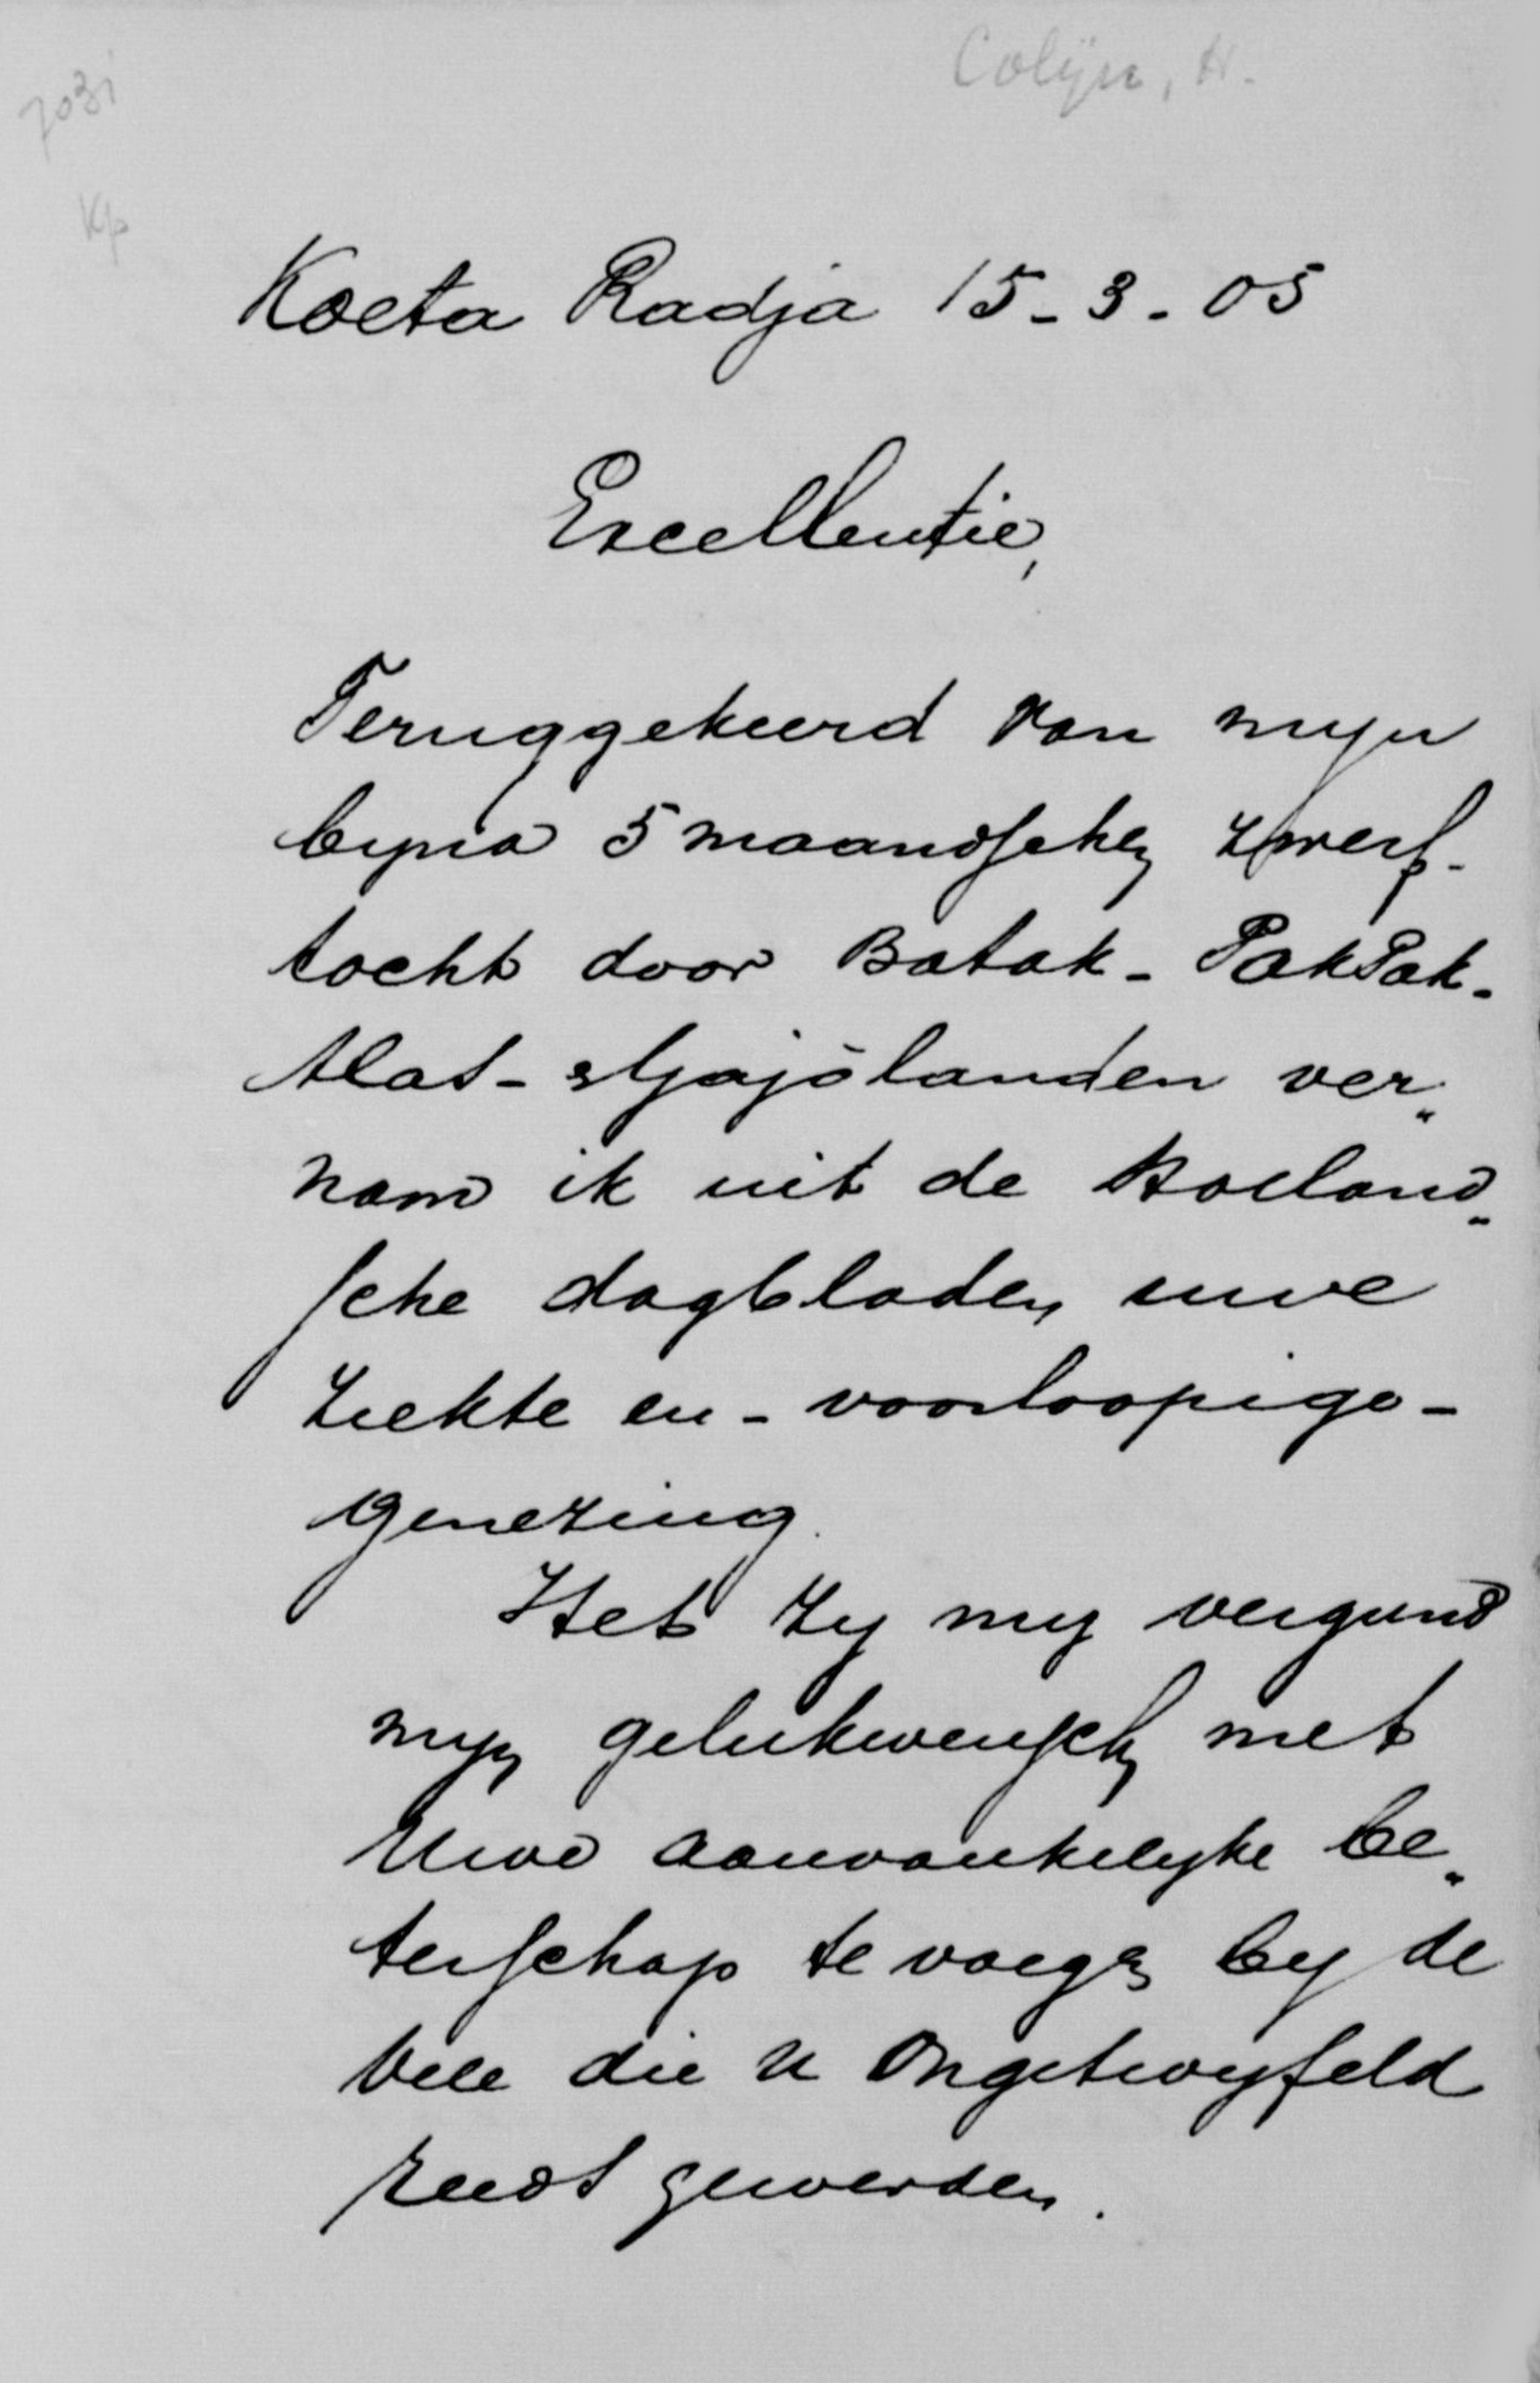 Colijn, H.
7031
Kp
Koeta Radja 15-3-05
Excellentie,
Teruggekeerd van mijn
bijna 5 maandschen zwerf-
tocht door Batak- PakPak-
Alas- & Gajōlanden ver„
nam ik uit de Holland„
sche dagbladen uwe
ziekte en - voorloopige -
genezing.
Het zij mij vergund
mijn gelukwensch met
Uwe aanvankelijke be„
terschap te voegen bij de
vele die U ongetwijfeld
reeds gewerden.